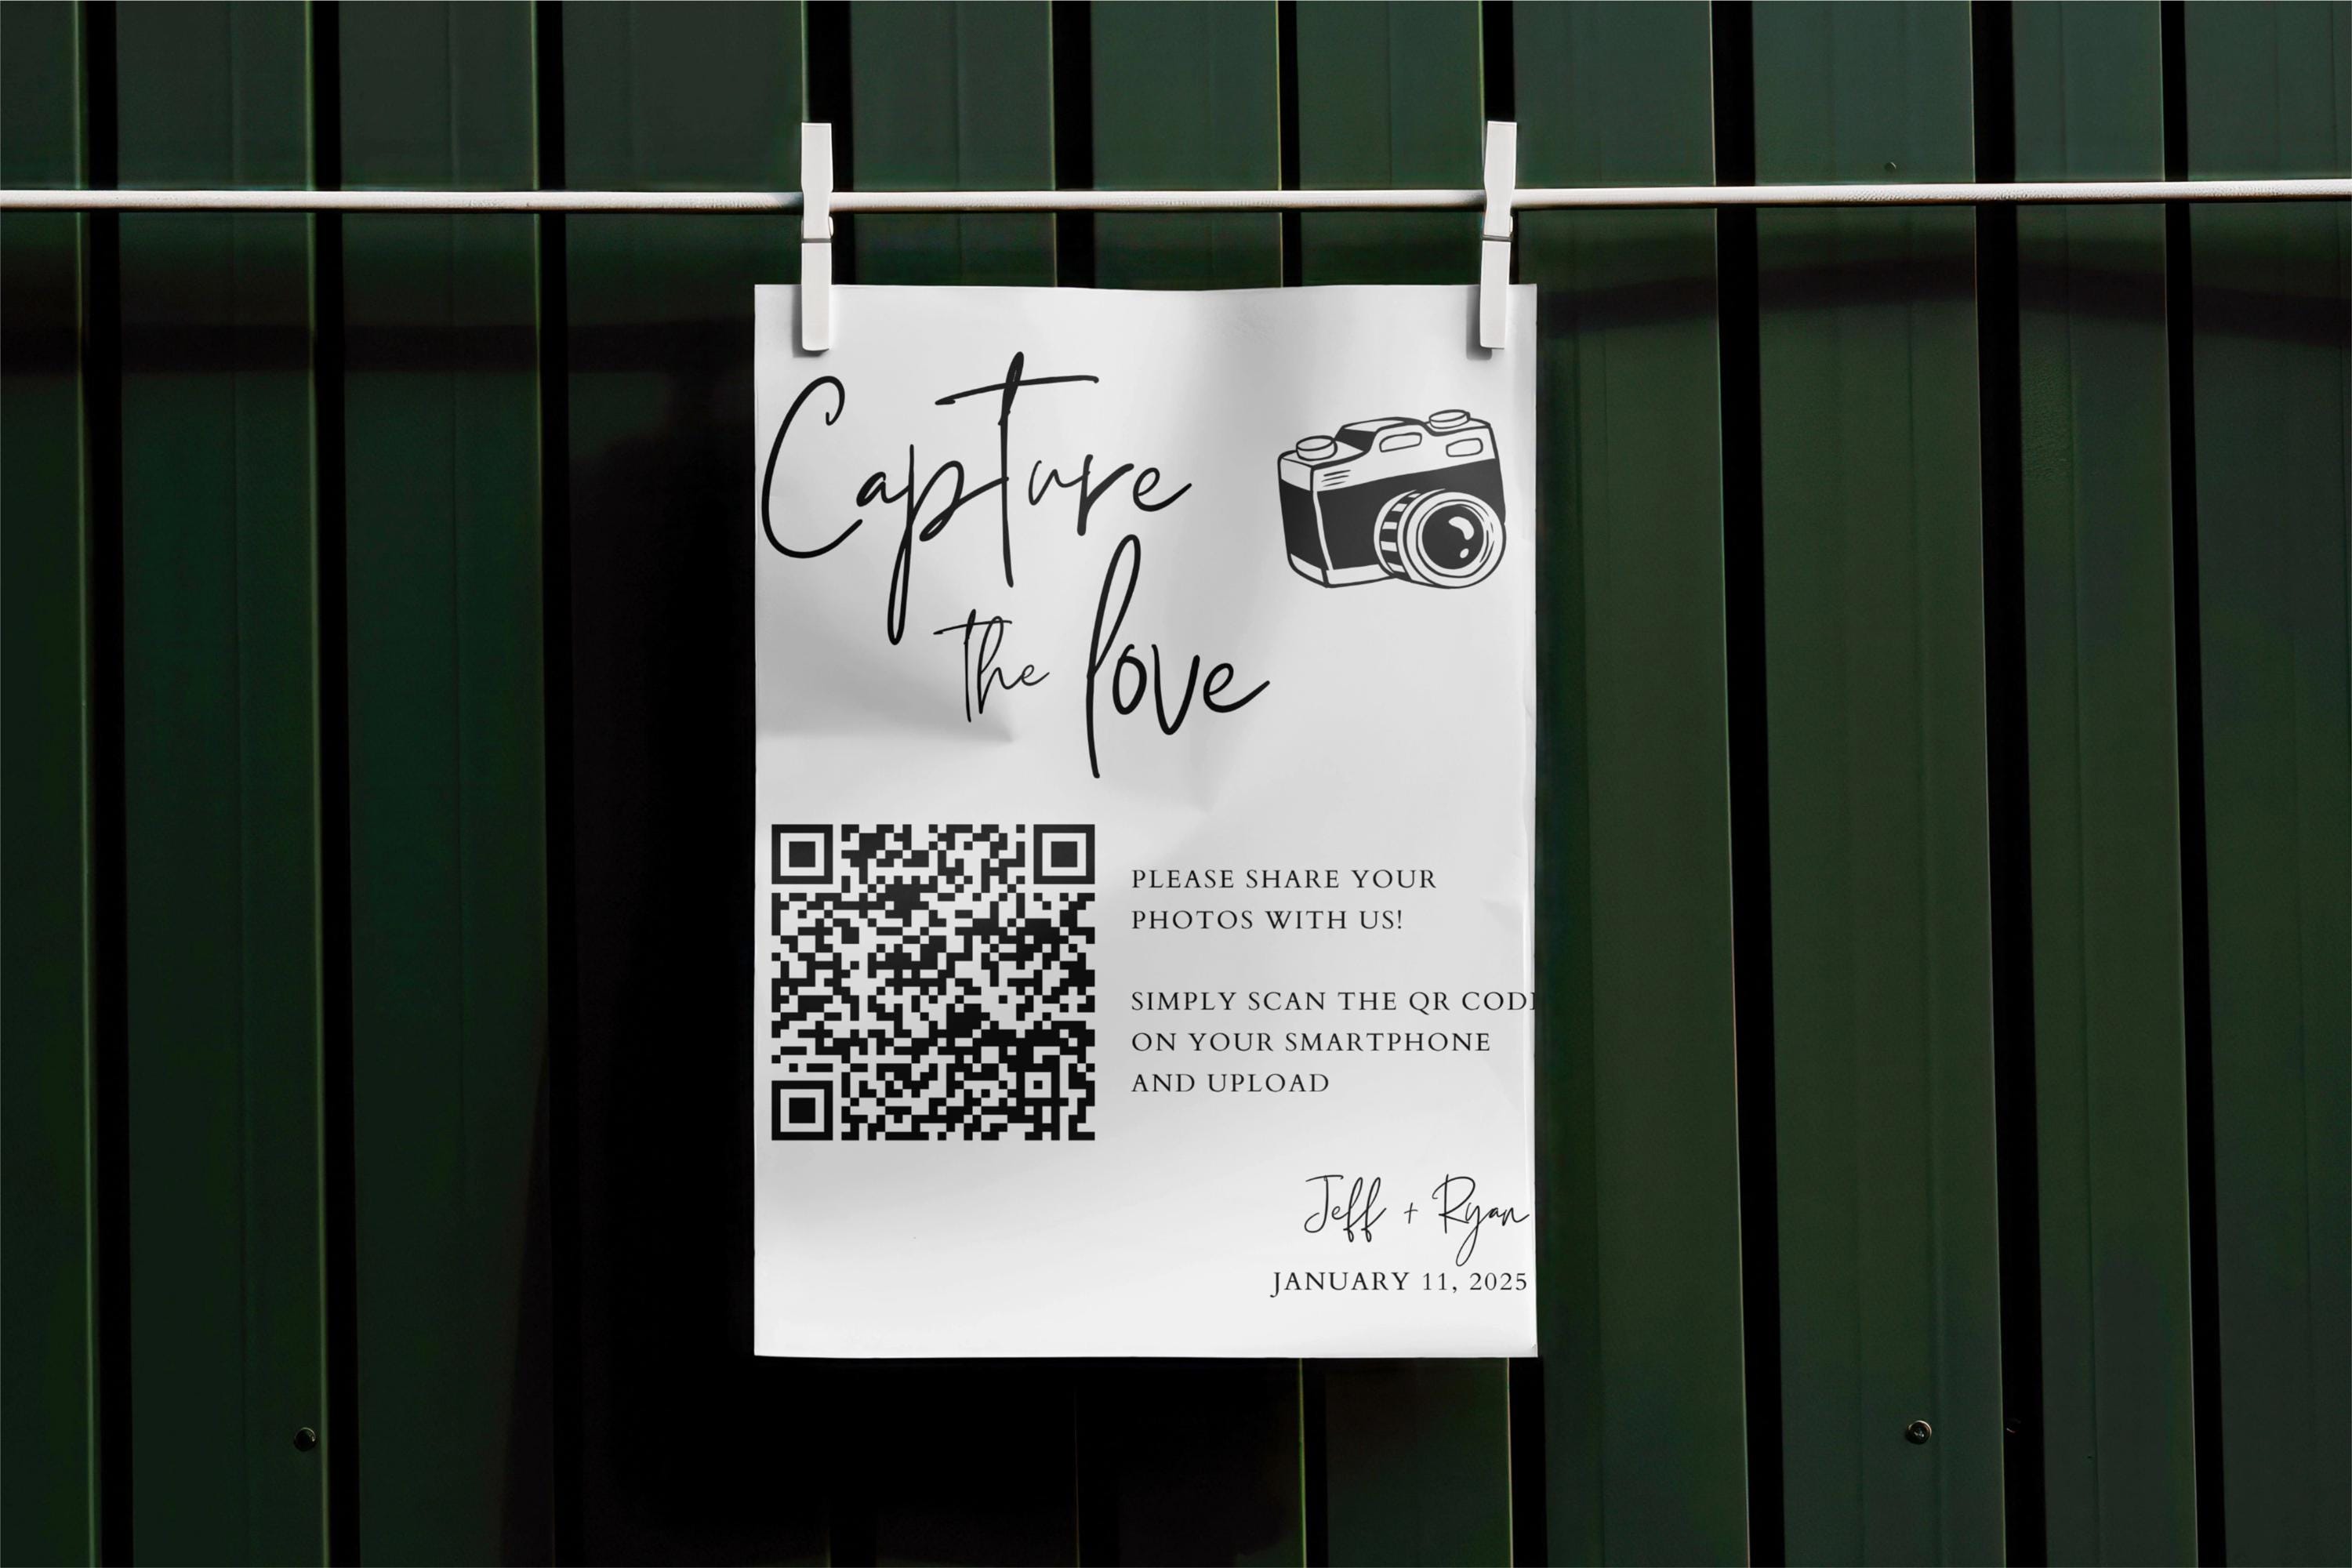 Capture
the love
PLEASE SHARE YOUR
PHOTOS WITH US!
SIMPLY SCAN THE QR COD
ON YOUR SMARTPHONE
AND UPLOAD
Jeff + Ryan
JANUARY 11, 2025